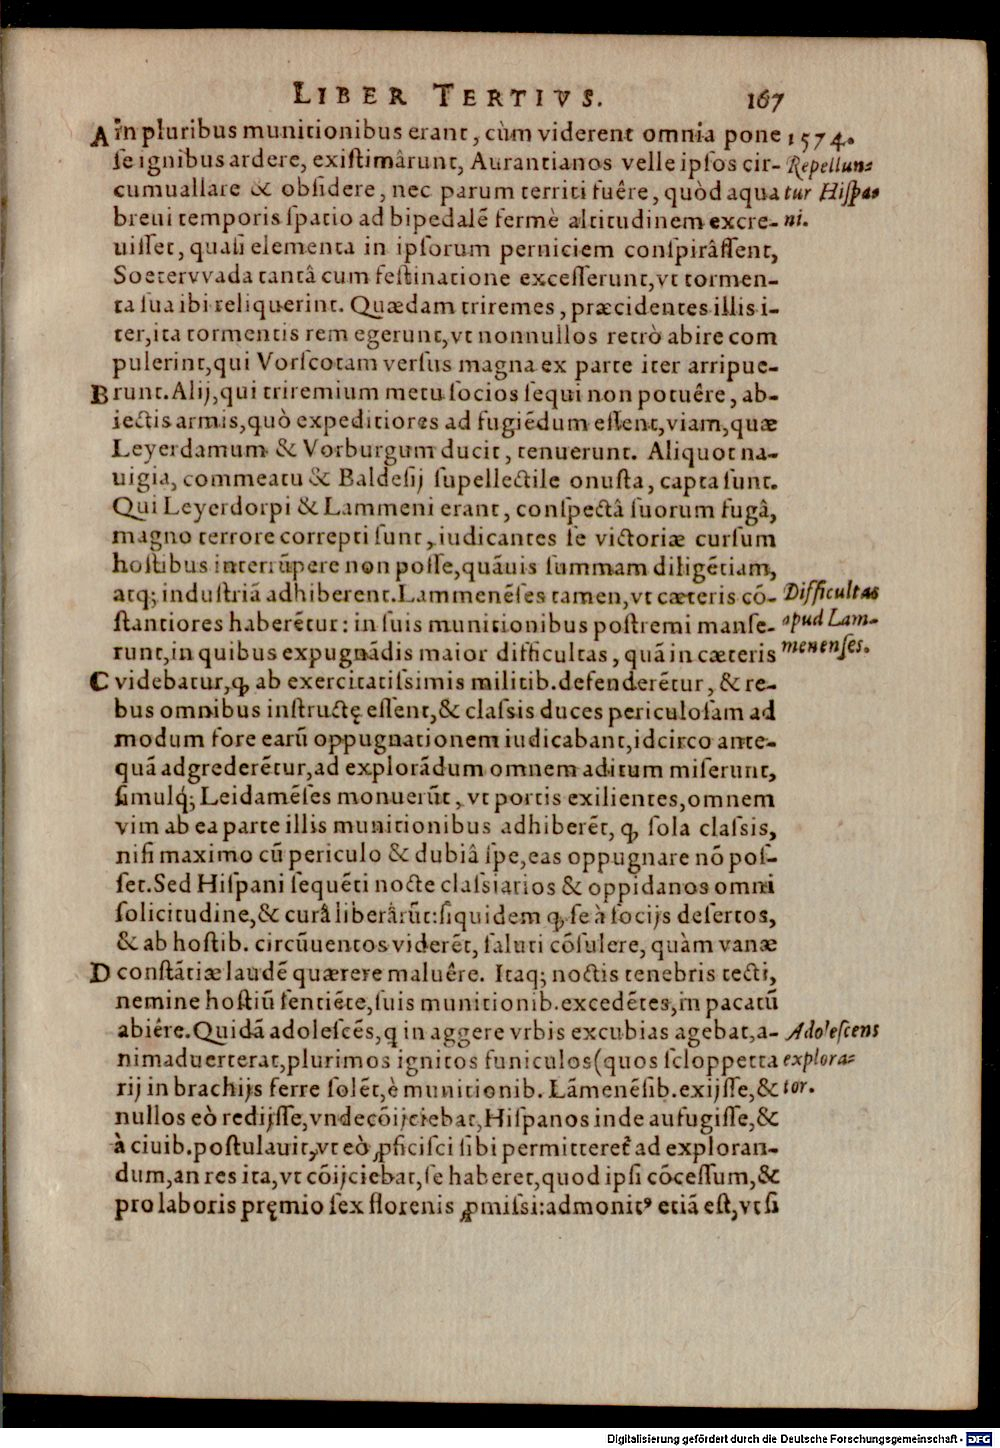 LIBER TERTIVS. 167
A in pluribus munitionibus erant, cùm viderent omnia pone 1574.
ſe ignibus ardere, exiſtimârunt, Aurantianos velle ipſos cir- Repellun-
cumuallare & obſidere, nec parum territi fuêre, quòd aqua tur Hiſpa-
breui temporis ſpatio ad bipedalẽ fermè altitudinem excre- ni.
uiſſet, quaſi elementa in ipſorum perniciem conſpirâſſent,
Soetervvada tantâ cum feſtinatione exceſſerunt, vt tormen-
ta ſua ibi reliquerint. Quædam triremes, præcidentes illis i-
ter, ita tormentis rem egerunt, vt nonnullos retrò abire com
pulerint, qui Vorſcotam verſus magna ex parte iter arripue-
B runt. Alij, qui triremium metu ſocios ſequi non potuêre, ab-
iectis armis, quò expeditiores ad fugiẽdum eſſent, viam, quæ
Leyerdamum & Vorburgum ducit, tenuerunt. Aliquot na-
uigia, commeatu & Baldeſij ſupellectile onuſta, capta ſunt.
Qui Leyerdorpi & Lammeni erant, conſpectâ ſuorum fugâ,
magno terrore correpti ſunt, iudicantes ſe victoriæ curſum
hoſtibus interrũpere non poſſe, quãuis ſummam diligẽtiam,
atq; induſtriã adhiberent. Lammenẽſes tamen, vt cæteris cõ- Difficultas
ſtantiores haberẽtur: in ſuis munitionibus poſtremi manſe- apud Lam-
runt, in quibus expugnãdis maior difficultas, quã in cæteris menenſes.
C videbatur, ꝙ ab exercitatiſsimis militib. defenderẽtur, & re-
bus omnibus inſtructę eſſent, & claſsis duces periculoſam ad
modum fore earũ oppugnationem iudicabant, idcirco ante-
quã adgrederẽtur, ad explorãdum omnem aditum miſerunt,
ſimulq́; Leidamẽſes monuerũt, vt portis exilientes, omnem
vim ab ea parte illis munitionibus adhiberẽt, ꝙ ſola claſsis,
niſi maximo cũ periculo & dubiâ ſpe, eas oppugnare nõ poſ-
ſet. Sed Hiſpani ſequẽti nocte claſsiarios & oppidanos omni
ſolicitudine, & curâ liberârũt: ſiquidem ꝙ ſe à ſocijs deſertos,
& ab hoſtib. circũuentos viderẽt, ſaluti cõſulere, quàm vanæ
D conſtãtiæ laudẽ quærere maluêre. Itaq; noctis tenebris tecti,
nemine hoſtiũ ſentiẽte, ſuis munitionib. excedẽtes, in pacatũ
abiêre. Quidã adoleſcẽs, q in aggere vrbis excubias agebat, a- Adoleſcens
nimaduerterat, plurimos ignitos funiculos (quos ſcloppetta explora-
rij in brachijs ferre ſolẽt, è munitionib. Lãmenẽſib. exijſſe, & tor.
nullos eò redijſſe, vnde cõijciebat, Hiſpanos inde aufugiſſe, &
à ciuib. poſtulauit, vt eò ꝓficiſci ſibi permitteret᷑ ad exploran-
dum, an res ita, vt cõijciebat, ſe haberet, quod ipſi cõceſſum, &
pro laboris pręmio ſex florenis ꝓmiſsi: admonitꝰ etiã eſt, vt ſi
Digitalisierung gefördert durch die Deutsche Forschungsgemeinschaft - DFG